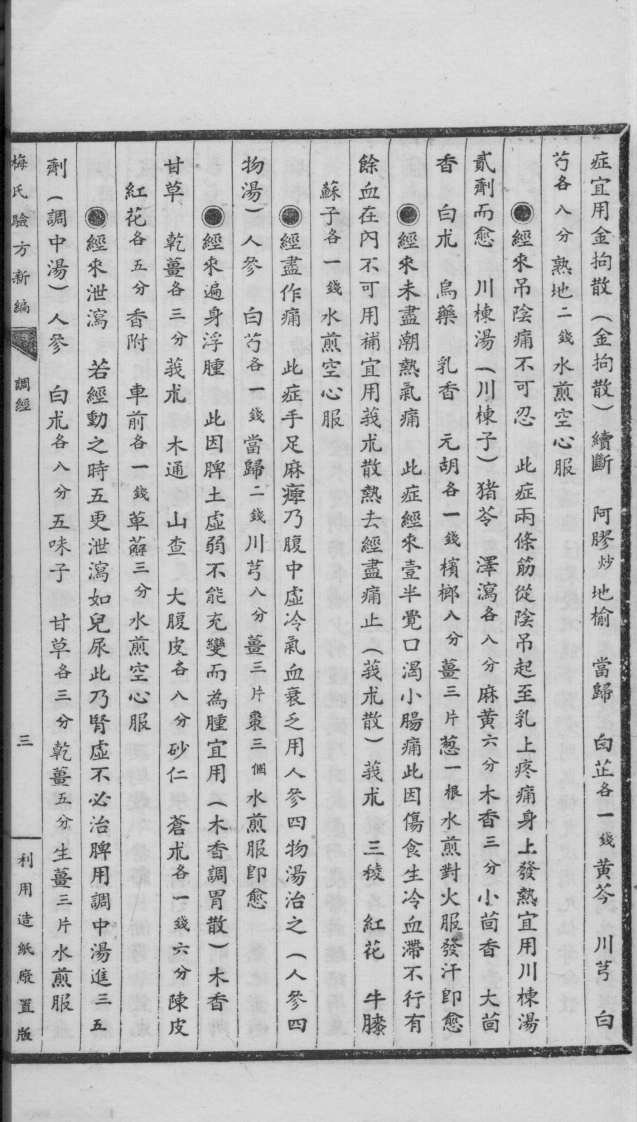 症宜用金拘散（金拘散）續斷　阿膠炒 地榆　當歸　白芷各一錢 黃芩　川芎　白
芍各八分 熟地二錢 水煎空心服
●經來吊陰痛不可忍　此症兩條筋從陰吊起至乳上疼痛身上發熱宜用川楝湯
貳劑而愈　川楝湯（川楝子）猪苓　澤瀉各八分 麻黃六分 木香三分 小茴香　大茴
香　白朮　烏藥　乳香　元胡各一錢 檳榔八分 薑三片 葱一根 水煎對火服發汗卽愈
●經來未盡潮熱氣痛　此症經來壹半覺口渴小腸痛此因傷食生冷血滯不行有
餘血在內不可用補宜用莪朮散熱去經盡痛止（莪朮散）莪朮　三稜　紅花　牛膝
蘇子各一錢 水煎空心服
●經盡作痛　此症手足麻痺乃腹中虛冷氣血衰乏用人參四物湯治之（人參四
物湯）人參　白芍各一錢 當歸二錢 川芎八分 薑三片 棗三個 水煎服卽愈
●經來遍身浮腫　此因脾土虛弱不能充變而為腫宜用（木香調胃散）木香
甘草　乾薑各三分 莪朮　木通　山查　大腹皮各八分 砂仁　蒼朮各一錢六分 陳皮
紅花各五分 香附　車前各一錢 萆薢三分 水煎空心服
●經來泄瀉　若經動之時五更泄瀉如兒尿此乃腎虛不必治脾用調中湯進三五
劑（調中湯）人參　白朮各八分 五味子　甘草各三分 乾薑五分 生薑三片 水煎服
梅氏驗方新編　調經　三　利用造紙廠置版